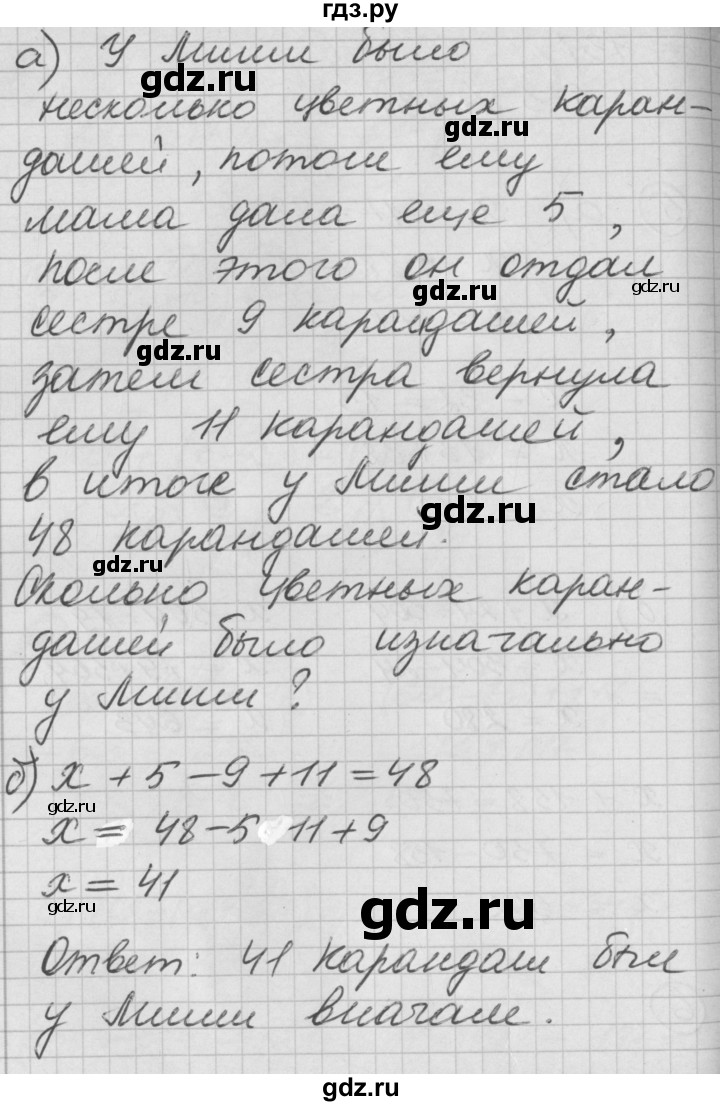 гдз.ру
а) У Миши было
несколько цветных каран-
дашей, потом ему
мама дала еще 5,
после этого он отдал
сестре 9 карандашей,
затем сестра вернула
ему 11 карандашей,
в итоге у Миши стало
48 карандашей.
Сколько цветных каран-
дашей было изначально
у Миши?
б) x + 5 - 9 + 11 = 48
x = 48 - 5 11 + 9
x = 41
Ответ: 41 карандаш был
у Миши вначале.
gdz.ru
gdz.ru
gdz.ru
gdz.ru
gdz.ru
gdz.ru
gdz.ru
gdz.ru
gdz.ru
gdz.ru
gdz.ru